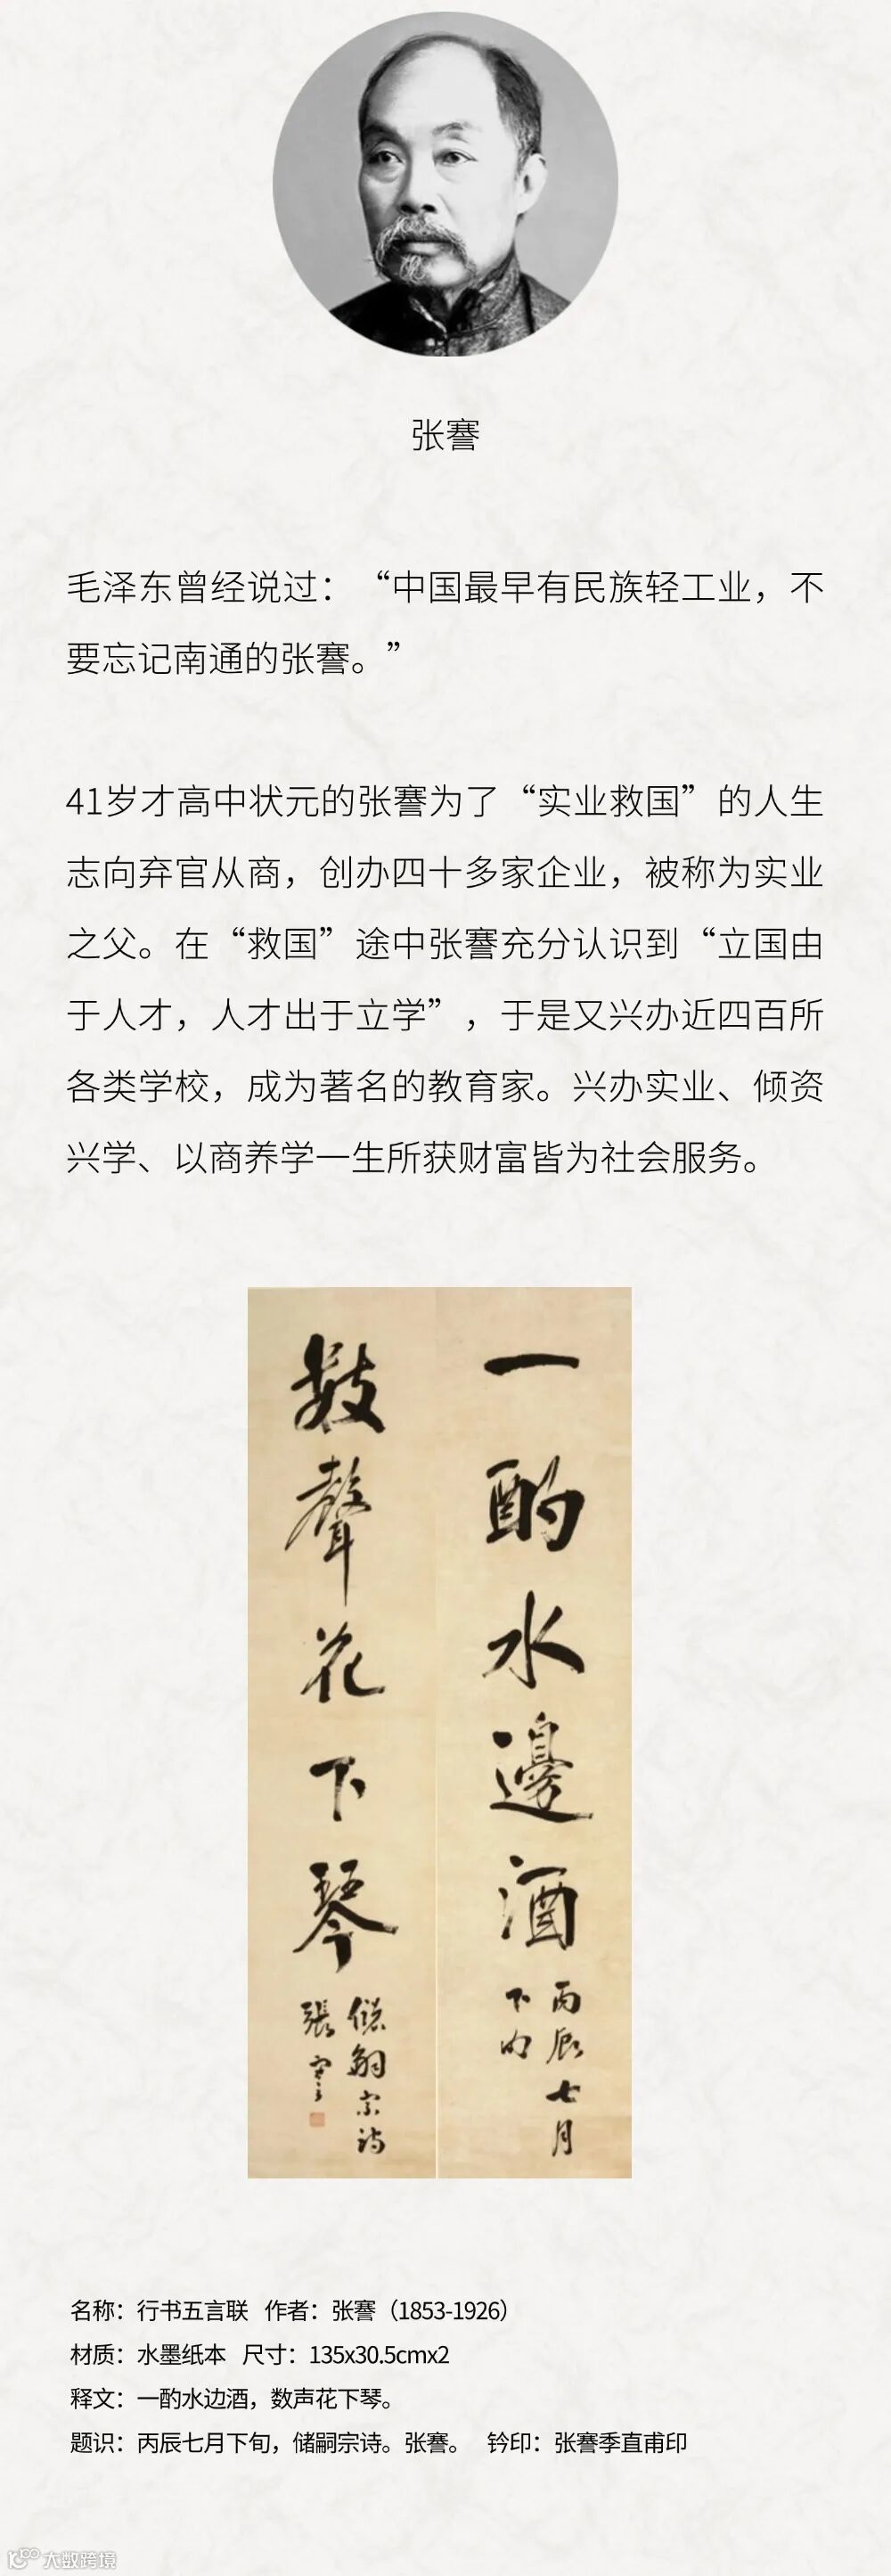 张謇
毛泽东曾经说过：“中国最早有民族轻工业，不
要忘记南通的张謇。”
41岁才高中状元的张謇为了“实业救国”的人生
志向弃官从商，创办四十多家企业，被称为实业
之父。在“救国”途中张謇充分认识到“立国由
于人才，人才出于立学”，于是又兴办近四百所
各类学校，成为著名的教育家。兴办实业、倾资
兴学、以商养学一生所获财富皆为社会服务。
一酌水邊酒
丙辰七月
下旬
數聲花下琴
儲嗣宗詩
張謇
名称：行书五言联 作者：张謇（1853-1926）
材质：水墨纸本 尺寸：135x30.5cmx2
释文：一酌水边酒，数声花下琴。
题识：丙辰七月下旬，储嗣宗诗。张謇。 钤印：张謇季直甫印
大数跨境